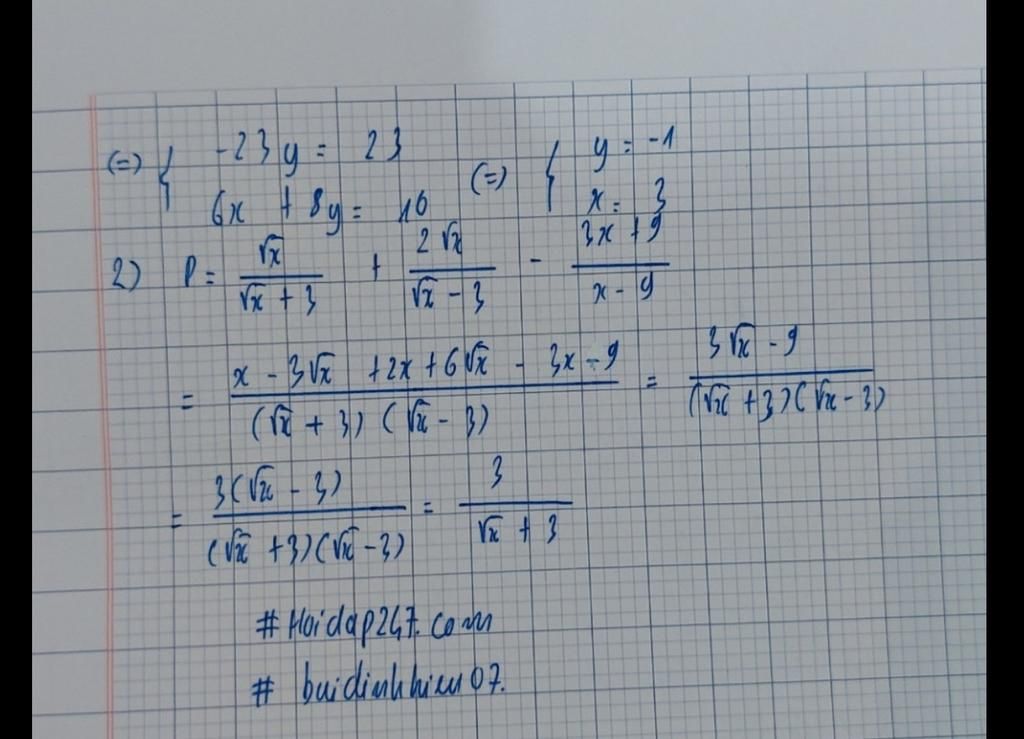 (=) { -23y = 23 (=) { y = -1
6x + 8y = 10 x = 3
2) P = √x / (√x + 3) + 2√x / (√x - 3) - (3x + 9) / (x - 9)
= (x - 3√x + 2x + 6√x - 3x - 9) / ((√x + 3)(√x - 3)) = (3√x - 9) / ((√x + 3)(√x - 3))
= 3(√x - 3) / ((√x + 3)(√x - 3)) = 3 / (√x + 3)
# Hoidap247.com
# buidinhhieu07.